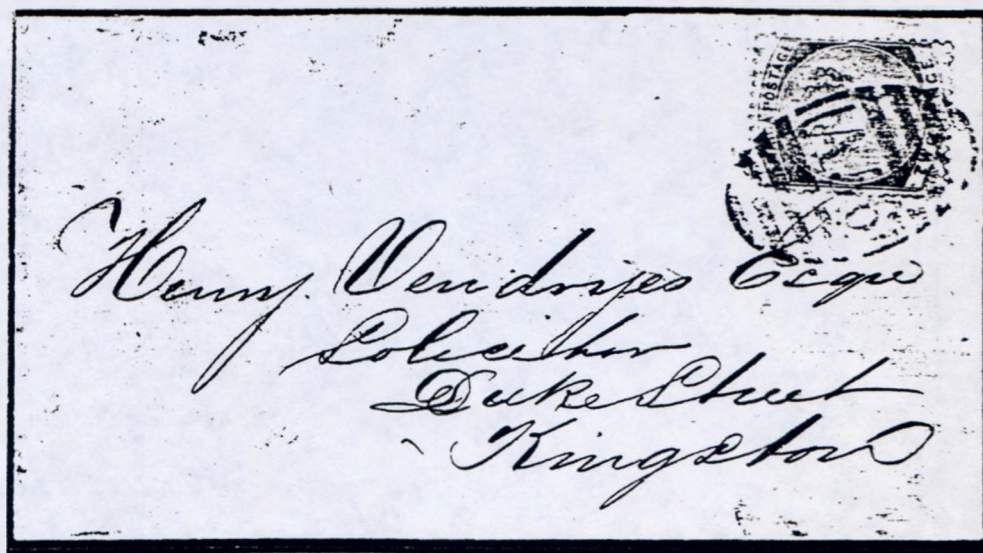 POSTAGE
Henry Vendryes Esqre
Solicitor
Duke Street
Kingston